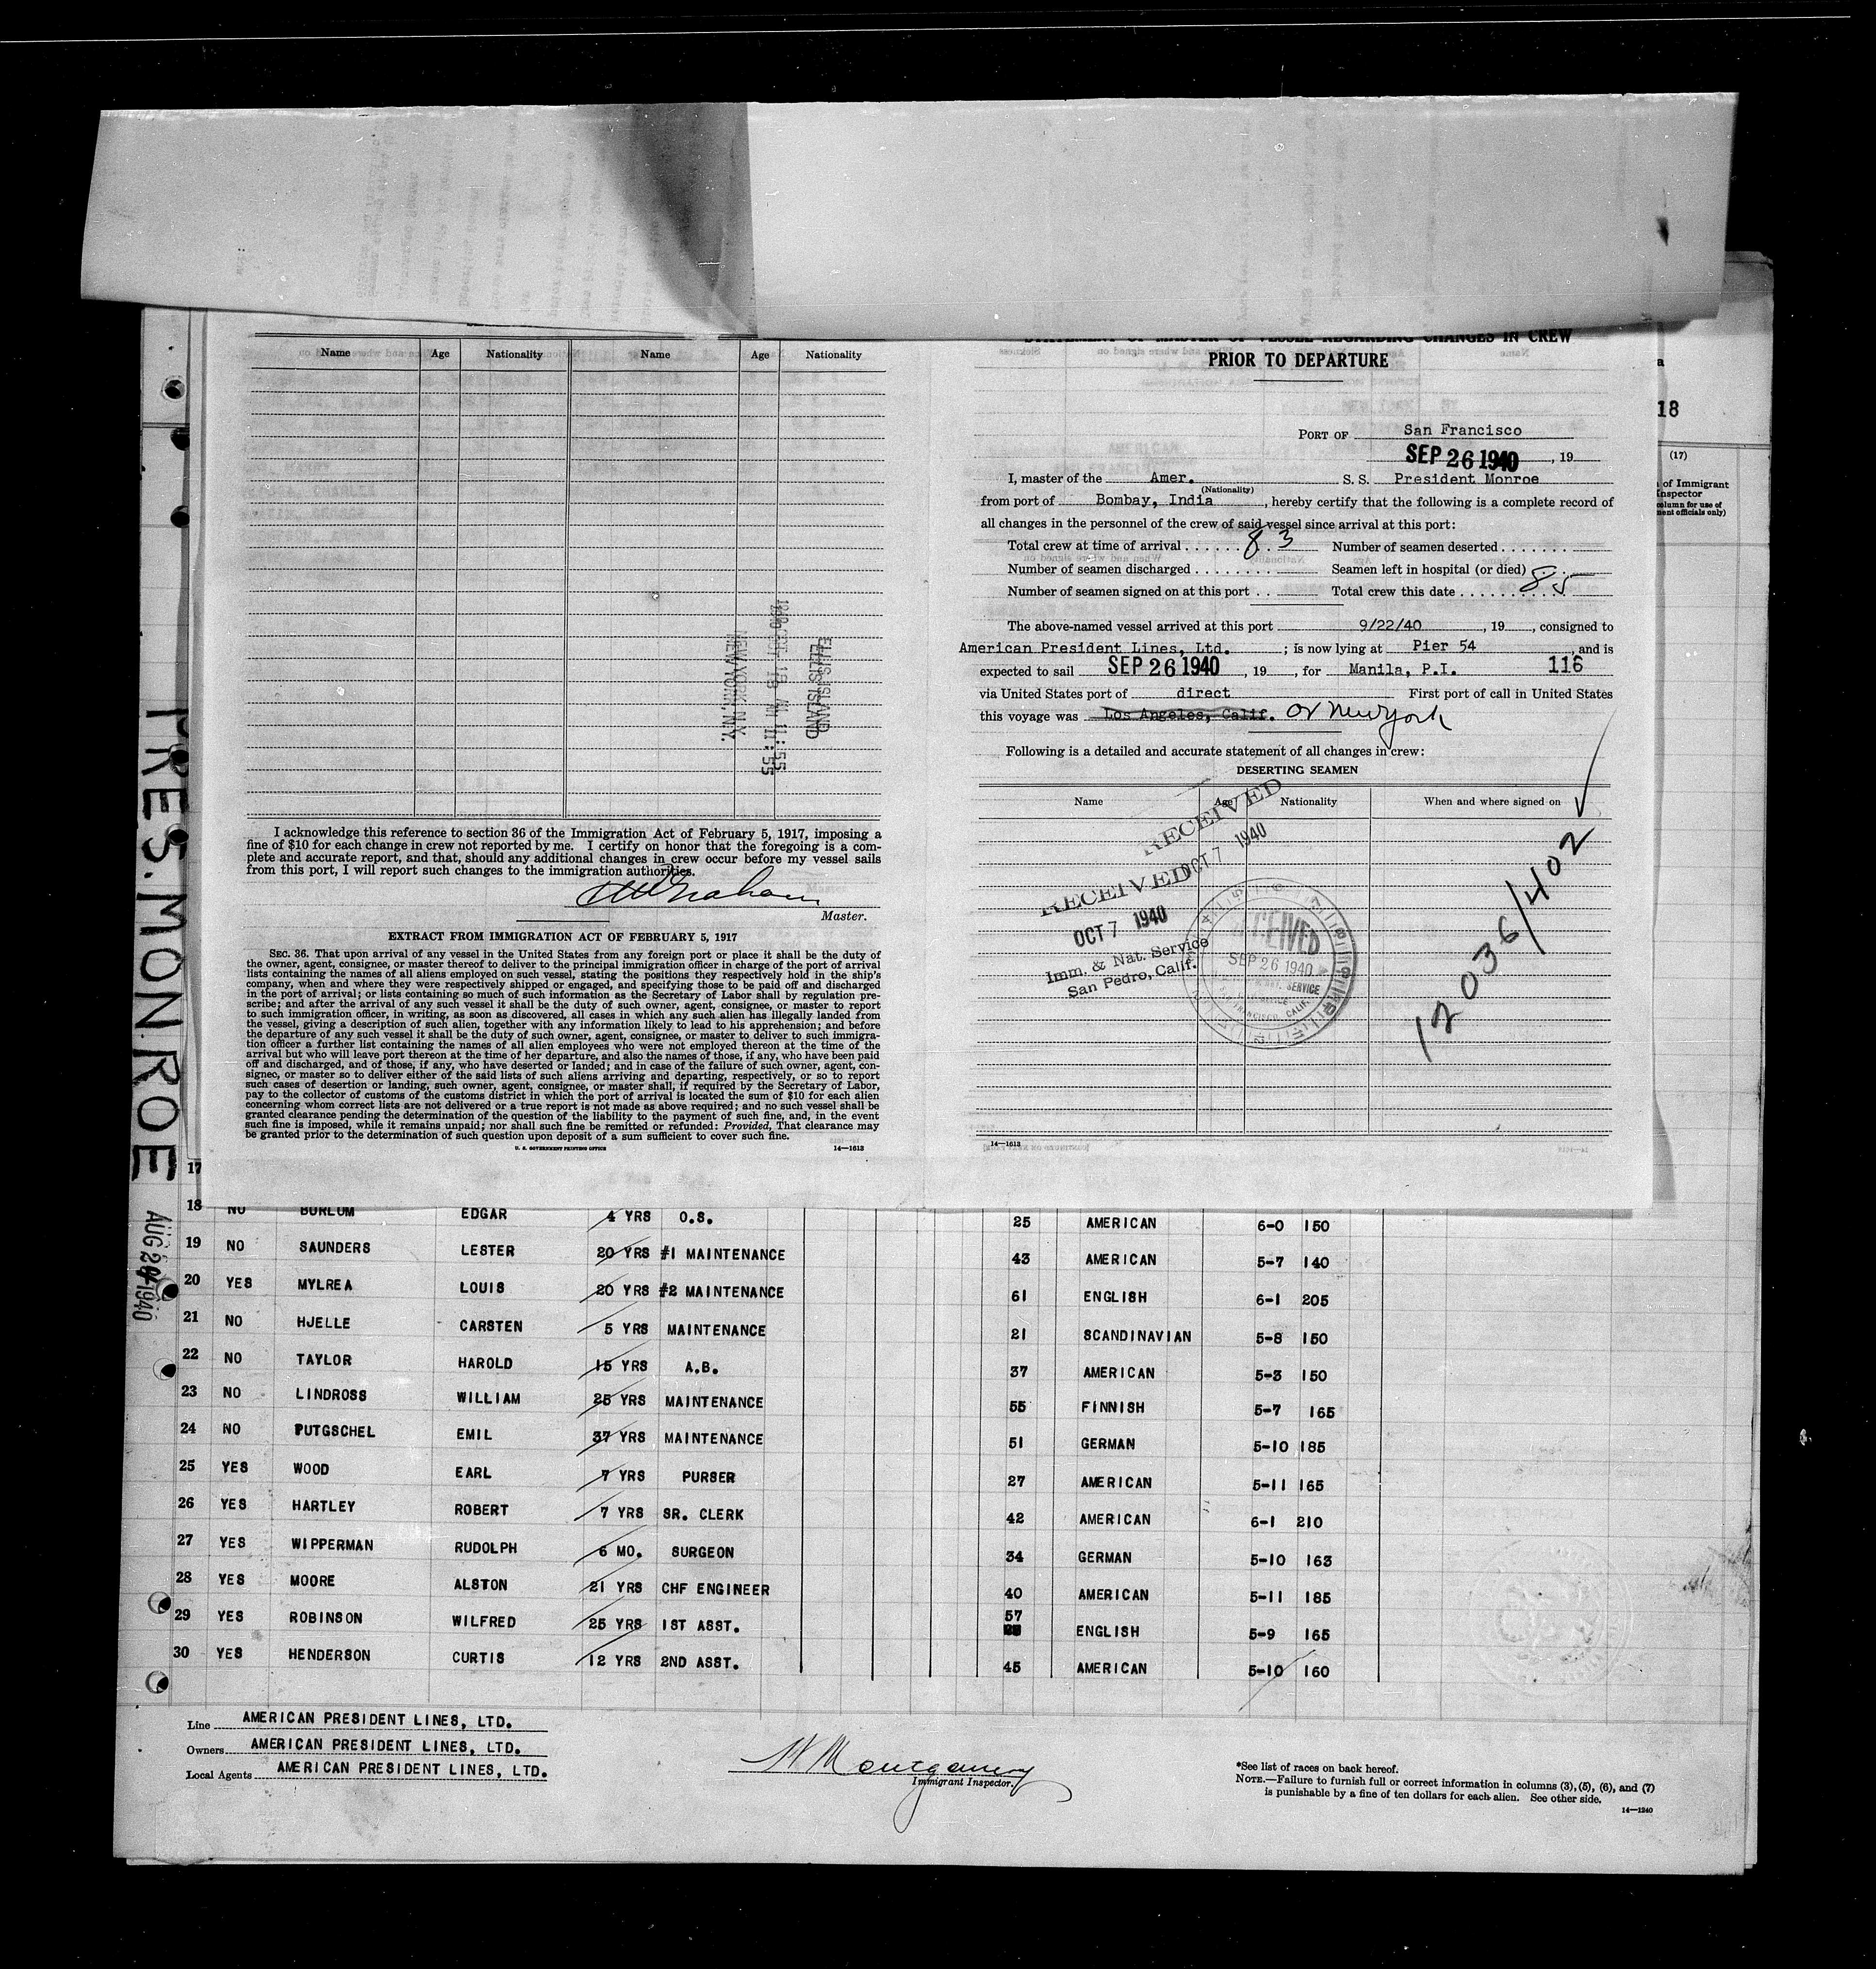 Name Age Nationality Name Age Nationality
I acknowledge this reference to section 36 of the Immigration Act of February 5, 1917, imposing a
fine of $10 for each change in crew not reported by me. I certify on honor that the foregoing is a com-
plete and accurate report, and that, should any additional changes in crew occur before my vessel sails
from this port, I will report such changes to the immigration authorities.
Master.
EXTRACT FROM IMMIGRATION ACT OF FEBRUARY 5, 1917
SEC. 36. That upon arrival of any vessel in the United States from any foreign port or place it shall be the duty of
the owner, agent, consignee, or master thereof to deliver to the principal immigration officer in charge of the port of arrival
lists containing the names of all aliens employed on such vessel, stating the positions they respectively hold in the ship's
company, when and where they were respectively shipped or engaged, and specifying those to be paid off and discharged
in the port of arrival; or lists containing so much of such information as the Secretary of Labor shall by regulation pre-
scribe; and after the arrival of any such vessel it shall be the duty of such owner, agent, consignee, or master to report
to such immigration officer, in writing, as soon as discovered, all cases in which any such alien has illegally landed from
the vessel, giving a description of such alien, together with any information likely to lead to his apprehension; and before
the departure of any such vessel it shall be the duty of such owner, agent, consignee, or master to deliver to such immigra-
tion officer a further list containing the names of all alien employees who were not employed thereon at the time of the
arrival but who will leave port thereon at the time of her departure, and also the names of those, if any, who have been paid
off and discharged, and of those, if any, who have deserted or landed; and in case of the failure of such owner, agent, con-
signee, or master so to deliver either of the said lists of such aliens arriving and departing, respectively, or so to report
such cases of desertion or landing, such owner, agent, consignee, or master shall, if required by the Secretary of Labor,
pay to the collector of customs of the customs district in which the port of arrival is located the sum of $10 for each alien
concerning whom correct lists are not delivered or a true report is not made as above required; and no such vessel shall be
granted clearance pending the determination of the question of the liability to the payment of such fine, and, in the event
such fine is imposed, while it remains unpaid; nor shall such fine be remitted or refunded: Provided, That clearance may
be granted prior to the determination of such question upon deposit of a sum sufficient to cover such fine.
U. S. GOVERNMENT PRINTING OFFICE 14—1613
ELLIS ISLAND
NEW YORK, N.Y.
STATEMENT OF MASTER OF VESSEL REGARDING CHANGES IN CREW
PRIOR TO DEPARTURE
PORT OF San Francisco
SEP 26 1940, 19
I, master of the Amer. S. S. President Monroe
(Nationality)
from port of Bombay, India, hereby certify that the following is a complete record of
all changes in the personnel of the crew of said vessel since arrival at this port:
Total crew at time of arrival 83 Number of seamen deserted
Number of seamen discharged Seamen left in hospital (or died)
Number of seamen signed on at this port Total crew this date 85
The above-named vessel arrived at this port 9/22/40, 19, consigned to
American President Lines, Ltd.; is now lying at Pier 54 and is
expected to sail SEP 26 1940, 19, for Manila, P.I. 116
via United States port of direct First port of call in United States
this voyage was Los Angeles, Calif. or New York
Following is a detailed and accurate statement of all changes in crew:
DESERTING SEAMEN
Name Age Nationality When and where signed on
RECEIVED
OCT 7 1940
RECEIVED
OCT 7 1940
Imm. & Nat. Service
San Pedro, Calif.
RECEIVED
SEP 26 1940
12036/402
14—1613
18
(17)
of Immigrant
Inspector
column for use of
ment officials only)
PRES. MONROE
AUG 24 1940
17
18 NO BURLUM EDGAR 4 YRS O.S. 25 AMERICAN 6-0 150
19 NO SAUNDERS LESTER 20 YRS #1 MAINTENANCE 43 AMERICAN 5-7 140
20 YES MYLREA LOUIS 20 YRS #2 MAINTENANCE 61 ENGLISH 6-1 205
21 NO HJELLE CARSTEN 5 YRS MAINTENANCE 21 SCANDINAVIAN 5-8 150
22 NO TAYLOR HAROLD 15 YRS A.B. 37 AMERICAN 5-3 150
23 NO LINDROSS WILLIAM 25 YRS MAINTENANCE 55 FINNISH 5-7 165
24 NO PUTGSCHEL EMIL 37 YRS MAINTENANCE 51 GERMAN 5-10 185
25 YES WOOD EARL 7 YRS PURSER 27 AMERICAN 5-11 165
26 YES HARTLEY ROBERT 7 YRS SR. CLERK 42 AMERICAN 6-1 210
27 YES WIPPERMAN RUDOLPH 6 MO. SURGEON 34 GERMAN 5-10 163
28 YES MOORE ALSTON 21 YRS CHF ENGINEER 40 AMERICAN 5-11 185
29 YES ROBINSON WILFRED 25 YRS 1ST ASST. 57 ENGLISH 5-9 165
30 YES HENDERSON CURTIS 12 YRS 2ND ASST. 45 AMERICAN 5-10 160
Line AMERICAN PRESIDENT LINES, LTD.
Owners AMERICAN PRESIDENT LINES, LTD.
Local Agents AMERICAN PRESIDENT LINES, LTD.
Montgomery
Immigrant Inspector.
*See list of races on back hereof.
NOTE.—Failure to furnish full or correct information in columns (3), (5), (6), and (7)
is punishable by a fine of ten dollars for each alien. See other side.
14—1240